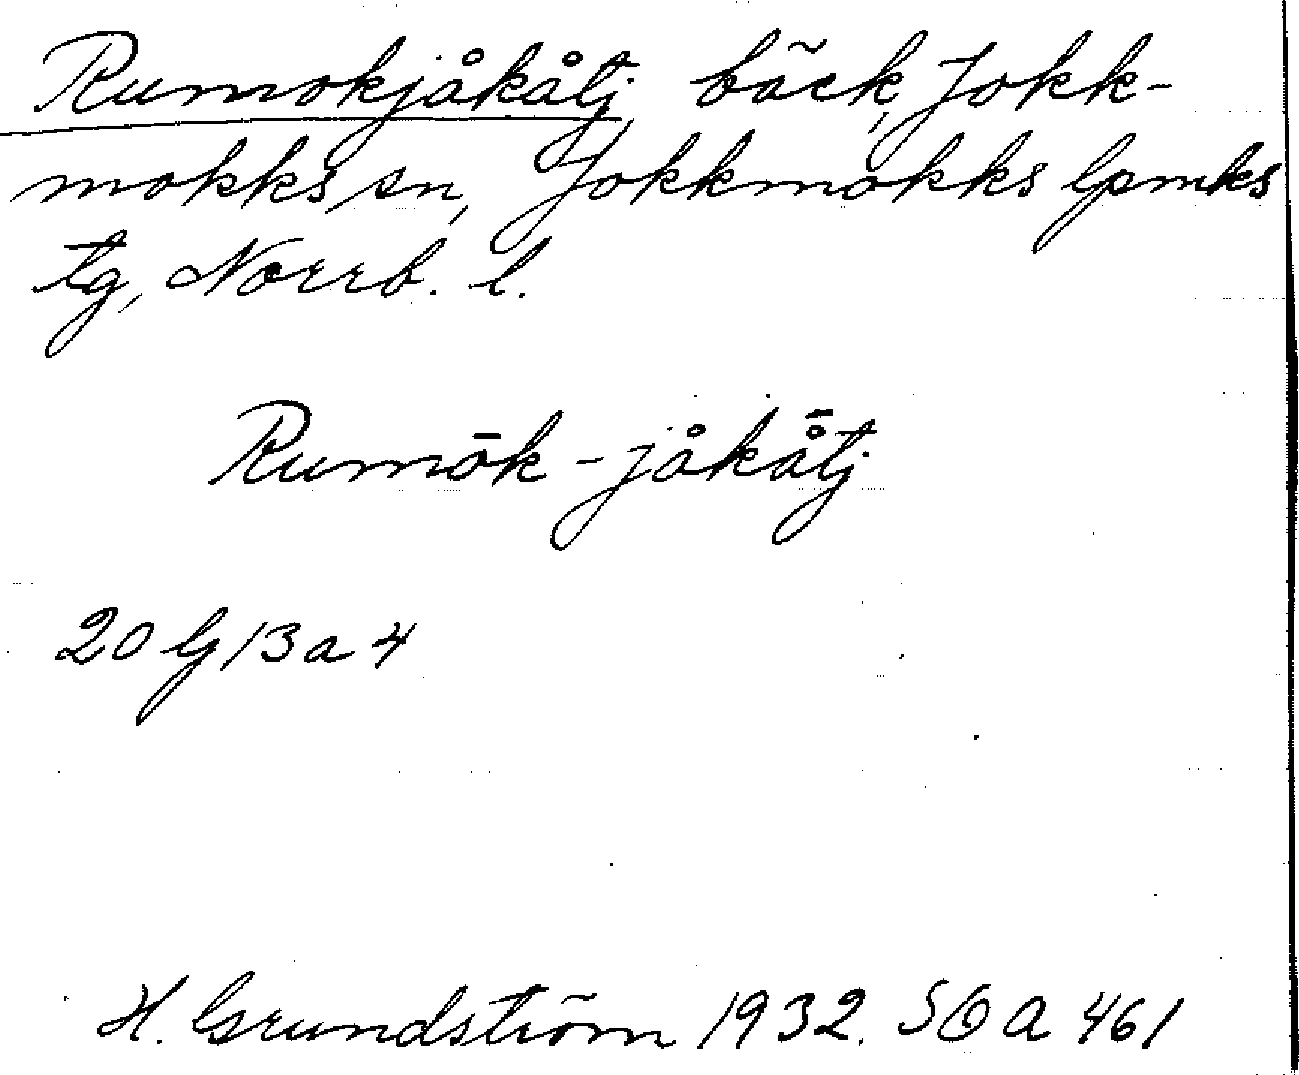 Rumokjåkåtj, bäck, Jokk-
mokks sn, Jokkmokks lpmks
tg, Norrb. l.
Rumōk-jåkå̄tj
20 G 13 a 4
H. Grundström 1932. SOA 461